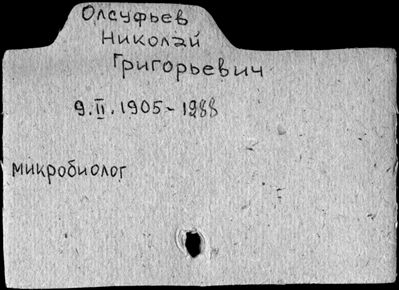 Олсуфьев
Николай
Григорьевич
9.II.1905-1988
микробиолог